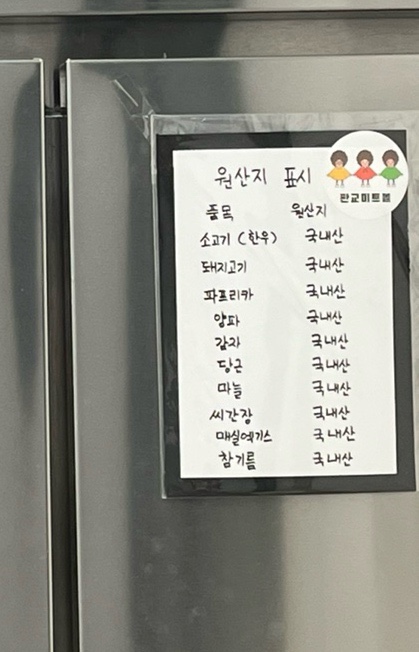 원산지 표시
판교미트볼
품목 원산지
소고기 (한우) 국내산
돼지고기 국내산
파프리카 국내산
양파 국내산
감자 국내산
당근 국내산
마늘 국내산
씨간장 국내산
매실엑기스 국내산
참기름 국내산